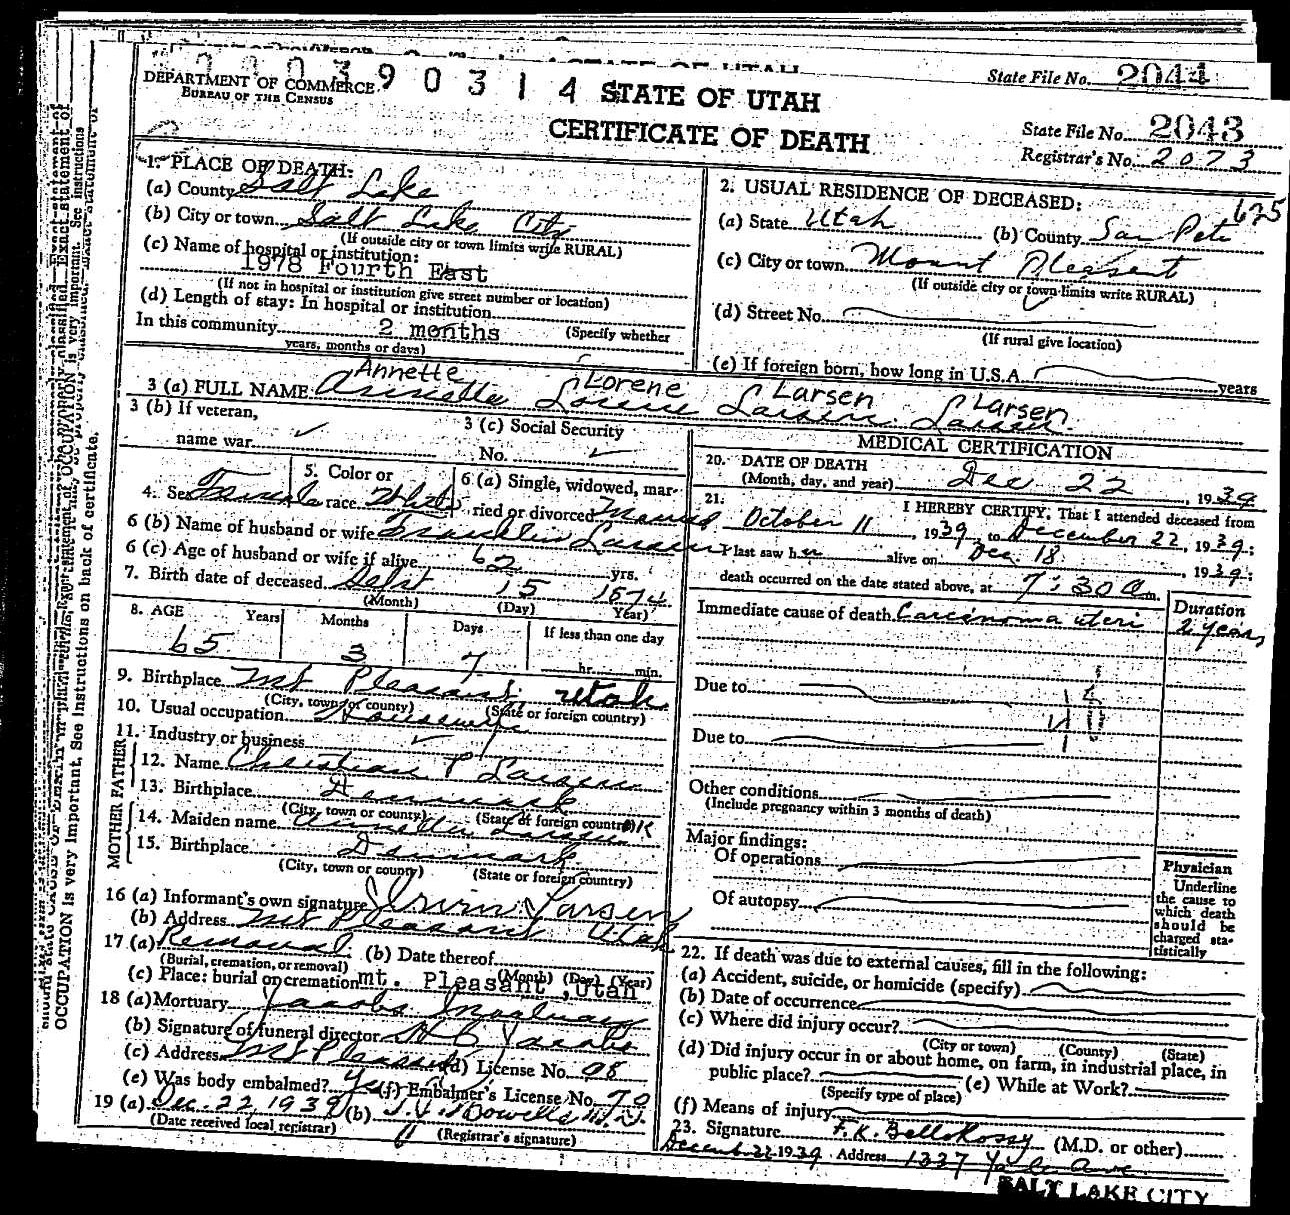 State File No. 2044
3 9 0 3 1 4
DEPARTMENT OF COMMERCE
BUREAU OF THE CENSUS
STATE OF UTAH
CERTIFICATE OF DEATH
State File No. 2043
Registrar's No. 2073
1. PLACE OF DEATH:
(a) County Salt Lake
(b) City or town Salt Lake City
(If outside city or town limits write RURAL)
(c) Name of hospital or institution:
1978 Fourth East
(If not in hospital or institution give street number or location)
(d) Length of stay: In hospital or institution
In this community 2 months (Specify whether
years, months or days)
2. USUAL RESIDENCE OF DECEASED: 625
(a) State Utah (b) County San Pete
(c) City or town Mount Pleasant
(If outside city or town limits write RURAL)
(d) Street No.
(If rural give location)
(e) If foreign born, how long in U.S.A. years
Annette Lorene Larsen Larsen
3 (a) FULL NAME Annette Lorene Larsen Larsen
3 (b) If veteran,
name war
3 (c) Social Security
No.
4. Sex Female 5. Color or race White 6 (a) Single, widowed, married or divorced Married
6 (b) Name of husband or wife Franklin Larsen
6 (c) Age of husband or wife if alive 62 yrs.
7. Birth date of deceased Sept 15 1874
(Month) (Day) Year)
8. AGE Years Months Days If less than one day
65 3 7 hr. min.
9. Birthplace Mt Pleasant Utah
(City, town or county) (State or foreign country)
10. Usual occupation Housewife
11. Industry or business
FATHER
12. Name Christian P Larsen
13. Birthplace Denmark
(City, town or county) (State or foreign country)
MOTHER
14. Maiden name Annette Larsen
15. Birthplace Denmark
(City, town or county) (State or foreign country)
16 (a) Informant's own signature Irvin Larsen
(b) Address Mt Pleasant Utah
17 (a) Removal (b) Date thereof
(Burial, cremation, or removal) (Month) (Day) (Year)
(c) Place: burial or cremation mt. Pleasant, Utah
18 (a) Mortuary Jacobs Mortuary
(b) Signature of funeral director H C Jacobs
(c) Address Mt Pleasant (d) License No. 98
(e) Was body embalmed? Yes (f) Embalmer's License No. 70
19 (a) Dec. 22, 1939 (b) M.D.
(Date received local registrar) (Registrar's signature)
MEDICAL CERTIFICATION
20. DATE OF DEATH
(Month, day, and year) Dec 22, 1939
21. I HEREBY CERTIFY, That I attended deceased from
October 11, 1939 to December 22, 1939;
I last saw her alive on Dec. 18, 1939;
death occurred on the date stated above, at 7:30 a.m.
Immediate cause of death Carcinoma uteri
Duration
2 years
Due to
Due to
Other conditions
(Include pregnancy within 3 months of death)
Major findings:
Of operations
Of autopsy
Physician
Underline
the cause to
which death
should be
charged sta-
tistically
22. If death was due to external causes, fill in the following:
(a) Accident, suicide, or homicide (specify)
(b) Date of occurrence
(c) Where did injury occur?
(City or town) (County) (State)
(d) Did injury occur in or about home, on farm, in industrial place, in
public place? (e) While at Work?
(Specify type of place)
(f) Means of injury
23. Signature F. K. (M.D. or other)
December 22 1939 Address 1337 Yale Ave
SALT LAKE CITY
OCCUPATION is very important. See instructions on back of certificate.